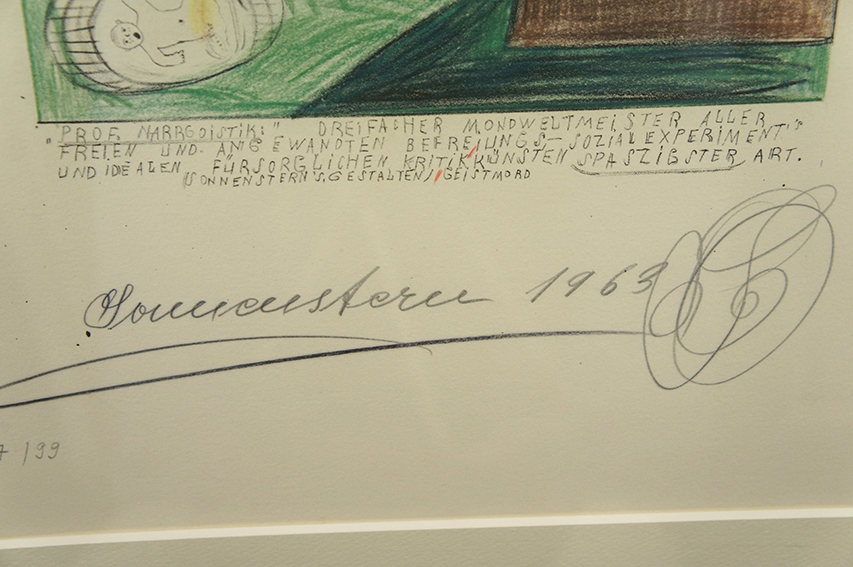 "PROF. NARRGOISTIK:" DREIFACHER MONDWELTMEISTER ALLER
FREIEN UND ANGEWANDTEN BEFREIUNGS- SOZIALEXPERIMENT"s
UND IDEALEN FÜRSORGLICHEN KRITIKKÜNSTEN SPASZIGSTER ART.
(SONNENSTERN'S, GESTALTEN) GEISTMORD
Sonnenstern 1963
7 /99